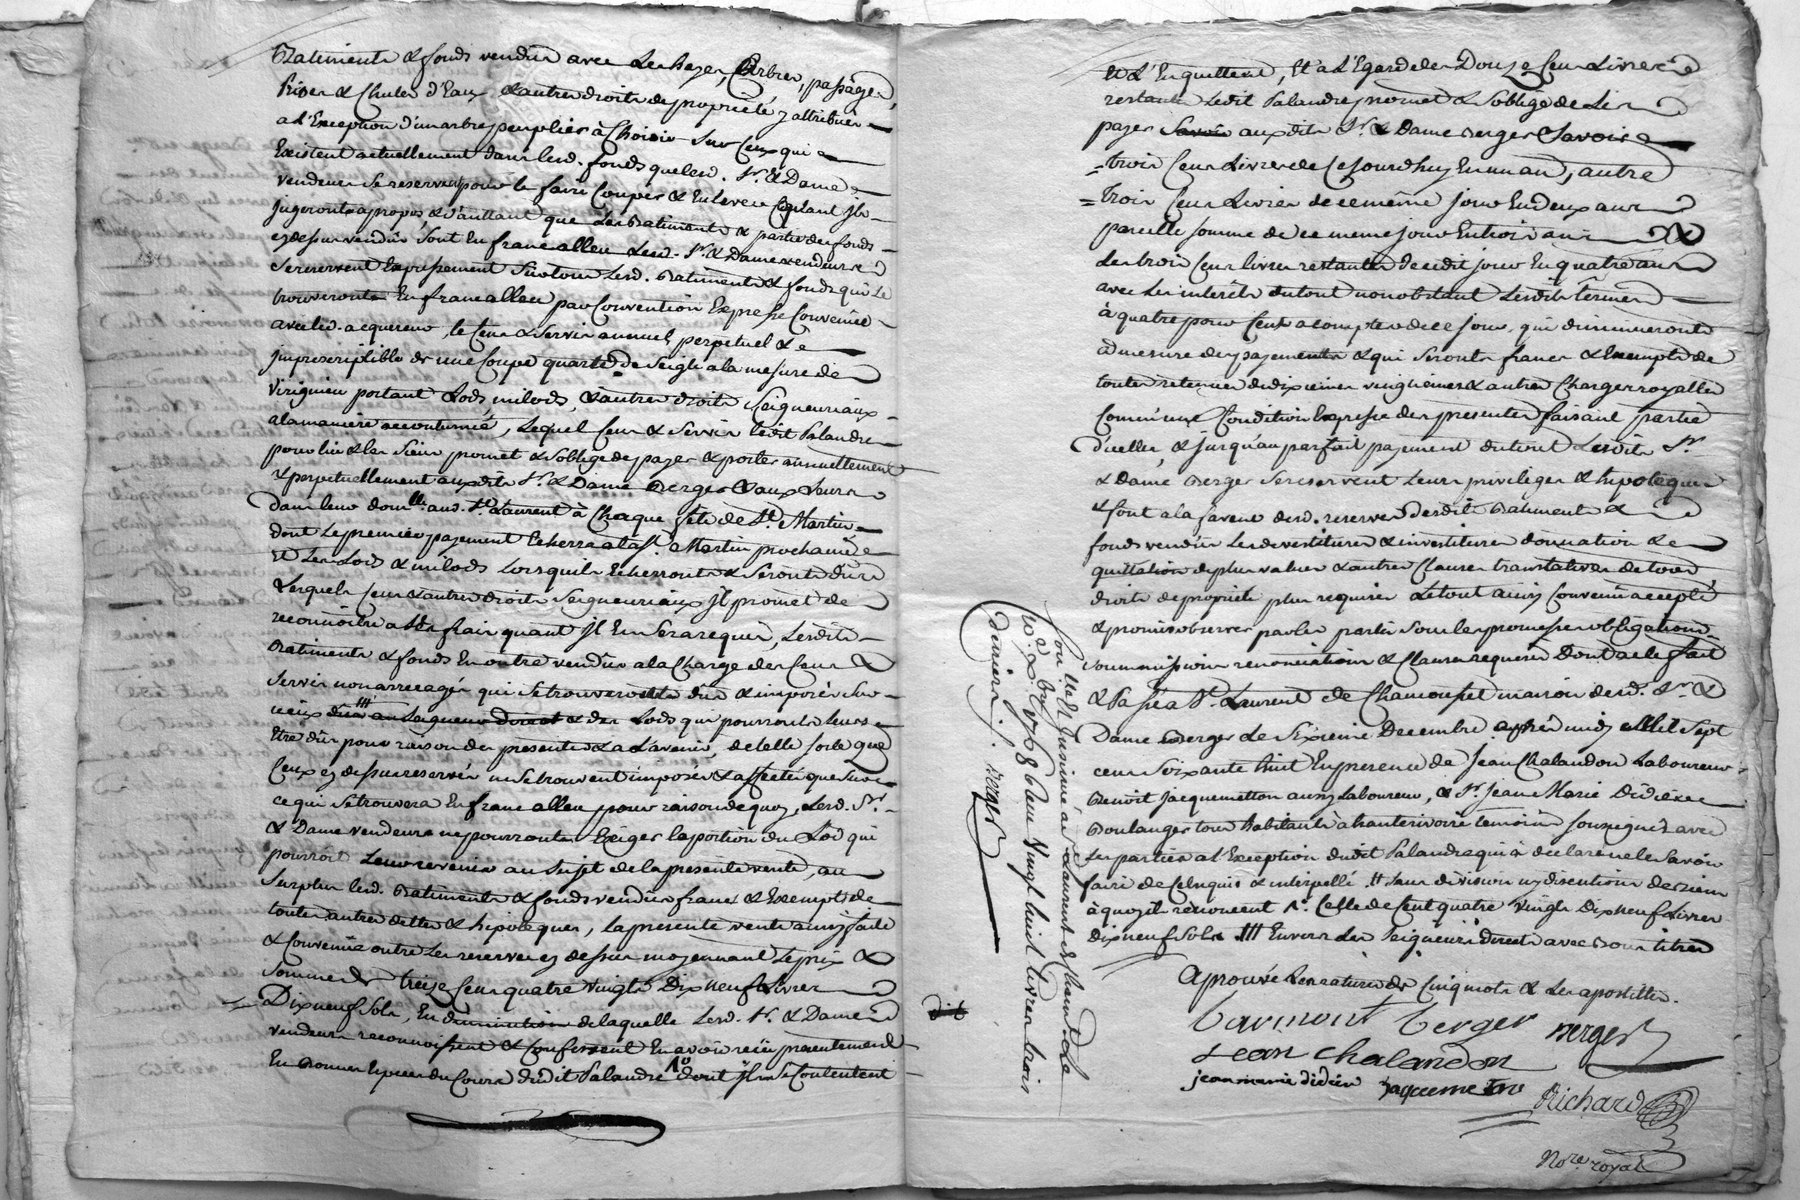 Batiments & fonds vendus avec les hayes, Arbres, passages,
prises & chutes d'Eaux & autres droits de propriété y attribués
a l'Exception d'un arbre peuplier à Choisir sur Ceux qui
Existent actuellement dans lesd. fonds que lesd. Sr. & Dame
vendeurs se reservent pour le faire Couper & Enlever quant Ils
Jugeront apropos, & d'autant que les Batiments & partie des fonds
cy dessus vendûs sont En franc alleu Lesd. Sr. & Dame vendeurs
se reservent Expressement sur tous Lesd. Batiments & fonds qui se
trouveront En franc alleu par Convention Expresse Convenue
avec led. acquereur, le Cens & servis annuel, perpetuel &
Imprescriptible de une Coupe quarte de Seigle a la mesure de
Virignieu portant Lods, milods, & autres droits Seigneuriaux
a la maniere accoutumée, Lequel Cens & Servis ledit Palandre
pour lui & les Siens promet & s'oblige de payer & porter annuellement
& perpetuellement auxdits Sr. & Dame Berger & aux Leurs
dans leur domlle. aud. St. Laurent à Chaque fête de St. Martin
dont le premier payement Echerra a la St. Martin prochaine
et Les Lods & milods Lorsquils Echerront & Seront dûs
Lesquels Cens & autres droits Seigneuriaux Il promet de
reconnoître a ses frais quant Il En Sera requis, Lesdits
Batiments & fonds En outre vendus a la Charge des Cens &
Servis non arreragés qui se trouveront dûs & imposés sur
iceux dûs /// au Seigneur direct & des Lods qui pourront leurs
Etre dûs pour raison des presentes & a L'avenir, de telle sorte que
Ceux cy dessus reservés ne se trouvent imposés & affectés que sur
ce qui se trouvera En franc alleu, pour raison de quoy, Lesd. Sr.
& Dame vendeurs ne pourront Exiger la portion du Lod qui
pourroit Leur revenir au Sujet de la presente vente, au
Surplus lesd. Batiments & fonds vendus francs & Exempts de
toutes autres dettes & hipoteques, la presente vente ainsy faite
& Convenüe outre Les reserves cy dessus moyennant Le prix &
Somme de treize Cens quatre vingts Dix neuf Livres
Dix neuf Sols, En diminution de laquelle Lesd. Sr. & Dame
vendeurs reconnoissent & Confessent En avoir reçu presentement
En bonnes Especes du Cours dudit Palandre 1° dont Ils se Contentent
Et L'En quittent, Et a L'Egard des Douze Cens Livres
restants Ledit Palandre promet & s'oblige de Les
payer Savoir auxdits Sr. & Dame Berger Savoir
trois Cens Livres de Cejourdhuy En un an, autre
trois Cens Livres de ce même jour En deux ans
pareille somme de ce meme jour En trois ans &
Les trois Cens livres restantes de cedit jour En quatre ans
avec Les interêts du tout nonobstant Lesdits termes
à quatre pour Cent a compter de ce jour, qui diminueront
a mesure des payements & qui seront francs & Exempts de
toutes retenües de dixiemes vingtiemes & autres Charges royalles
Comm'une Condition Expresse des presentes faisant partie
d'icelles, & jusqu'au parfait payement du tout Lesdits Sr.
& Dame Berger se reservent Leurs privileges & hipoteques
& font a la faveur desd. reserves desdits Batiments &
fonds vendus Les devestitures & investitures donnation &
quittation de plus values & autres Clauses translatives de tous
droits de proprieté plus requises Le tout ainsy Convenu accepté
& promis observer par les parties sous les promesses obligations
soummissions renonciations & Clauses requises Dont acte fait
& Passé a St. Laurent de Chamousset maison desd. Sr. &
Dame Berger Le Sixieme Decembre après midy Mil Sept
cens Soixante huit En presence de Jean Chalandon Laboureur
Benoît Jacquemetton aussy Laboureur, & Sr. Jean Marie Didier
Boulanger tous habitants à hauterivoire temoins soussignés avec
les parties a l'Exception dudit Palandre qui à declaré ne le Savoir
faire de Ce Enquis & interpellé. // Sans division ny discution de biens
à quoy ils renoncent 1°. Celle de Cent quatre vingts Dix neuf Livres
Dix neuf Sols. /// Envers Les Seigneurs directs avec bons titres
Aprouvé Les ratures de Cinq mots & les apostilles.
Tarmont Berger Berger
Jean Chalandon
jean marie didier Jaquemeton
Richard
Nore. royal
Con lle. Et Insinué a St. Laurent de Chamousset Le
10. Xbre 1768 reçu Vingt huit livres trois
deniers. Berger
dit